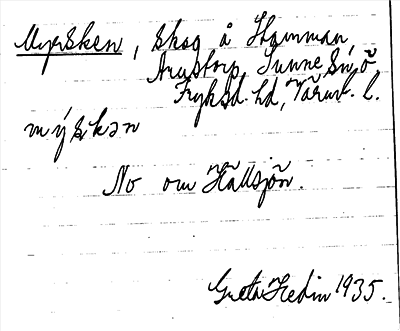 Myrsken, skog å Hamman,
Arustorp, Sunne Sn, ö.
Fryksd. hd, Värml. l.
mýskən
No om Hällsjön.
Greta Hedin 1935.